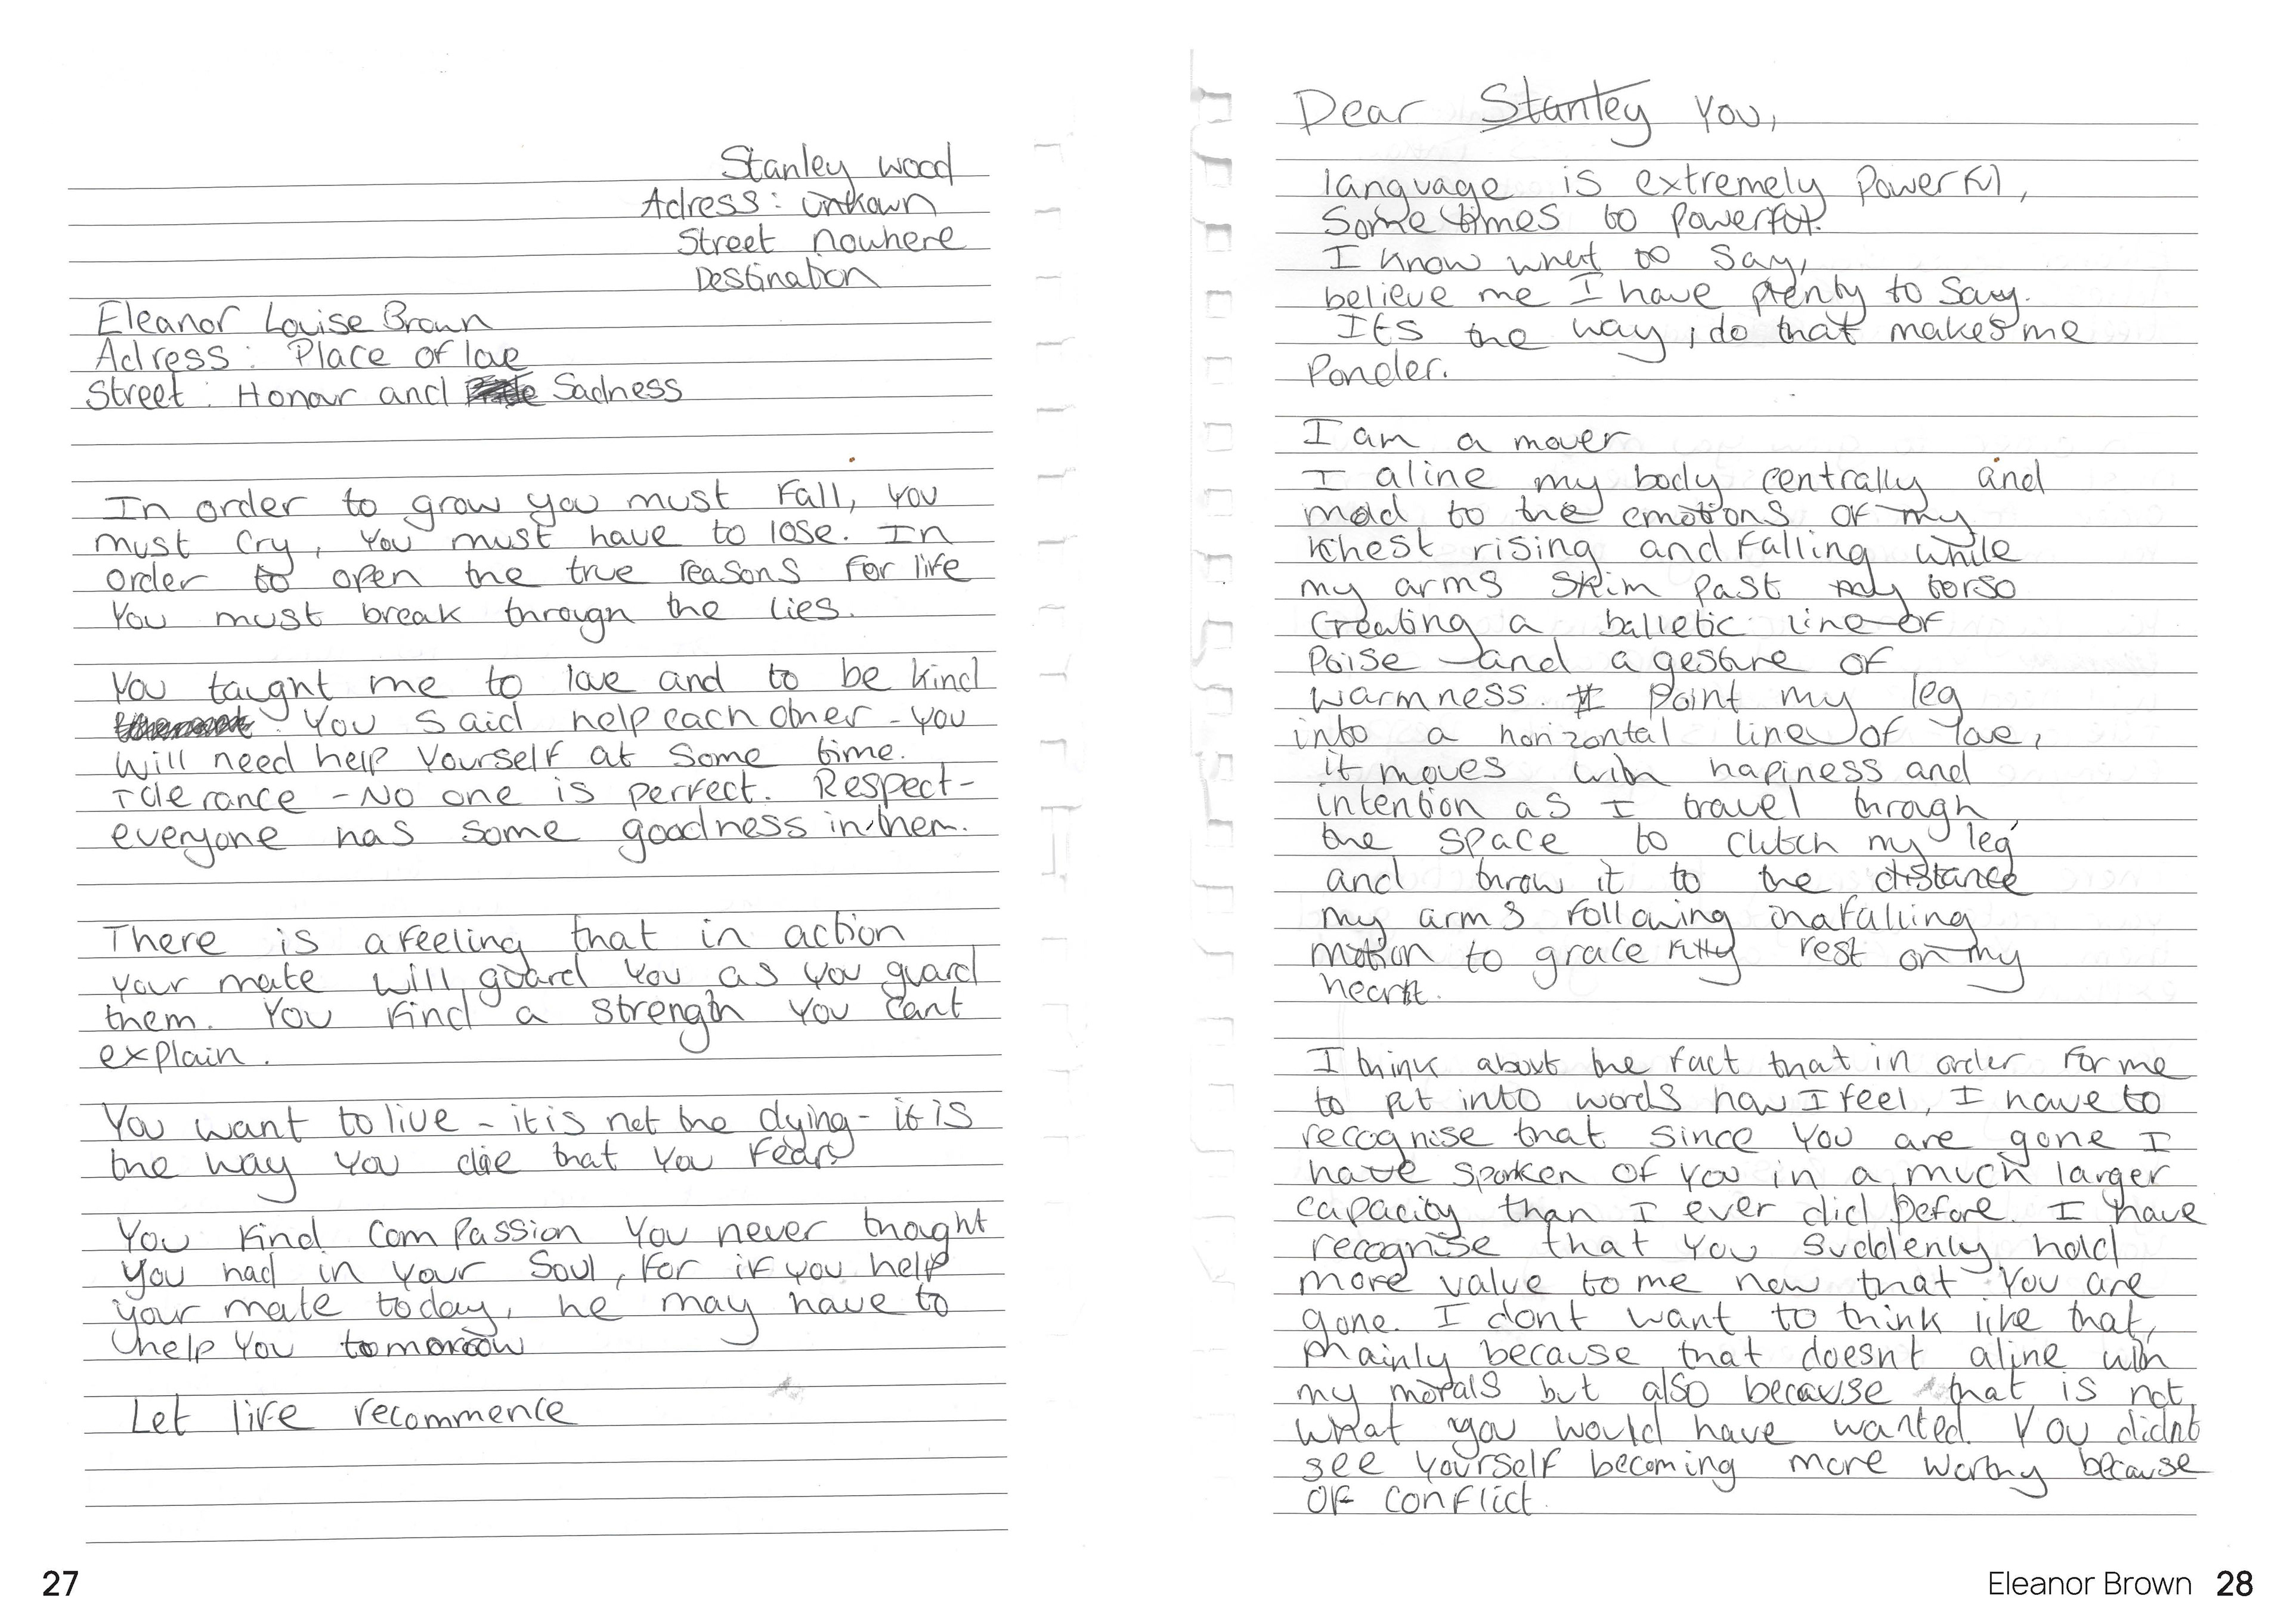 Stanley wood
Adress: unkown
Street nowhere
Destination
Eleanor Louise Brown
Adress: Place of love
Street: Honour and Sadness
In order to grow you must Fall, you
must cry, you must have to lose. In
order to open the true reasons for life
You must break through the lies.
You taught me to love and to be kind
. You said help each other - you
will need help Yourself at some time.
Tolerance - No one is perfect. Respect-
everyone has some goodness in them.
There is a feeling that in action
your mate will guard you as you guard
them. You find a strength you cant
explain.
You want to live - it is not the dying - it is
the way you die that you fear
You find compassion you never thought
you had in your Soul, for if you help
your mate today, he may have to
help you tomorrow
Let life recommence
27
Dear Stanley You,
language is extremely powerful,
Sometimes to powerful.
I know what to say,
believe me I have plenty to say.
Its the way i do that makes me
Ponder.
I am a mover
I aline my body centrally and
mold to the emotions of my
chest rising and falling while
my arms skim past my torso
creating a balletic line of
Poise and a gesture of
warmness. I point my leg
into a horizontal line of love,
it moves with hapiness and
intention as I travel through
the space to clutch my leg
and throw it to the distance
my arms following in a falling
motion to grace fully rest on my
heart.
I think about the fact that in order for me
to put into words how I feel, I have to
recognise that since you are gone I
have spoken of you in a much larger
capacity than I ever did before. I have
recognise that you suddenly hold
more value to me now that you are
gone. I dont want to think like that,
mainly because that doesnt aline with
my morals but also because that is not
what you would have wanted. You didnt
see yourself becoming more worthy because
of conflict.
Eleanor Brown 28